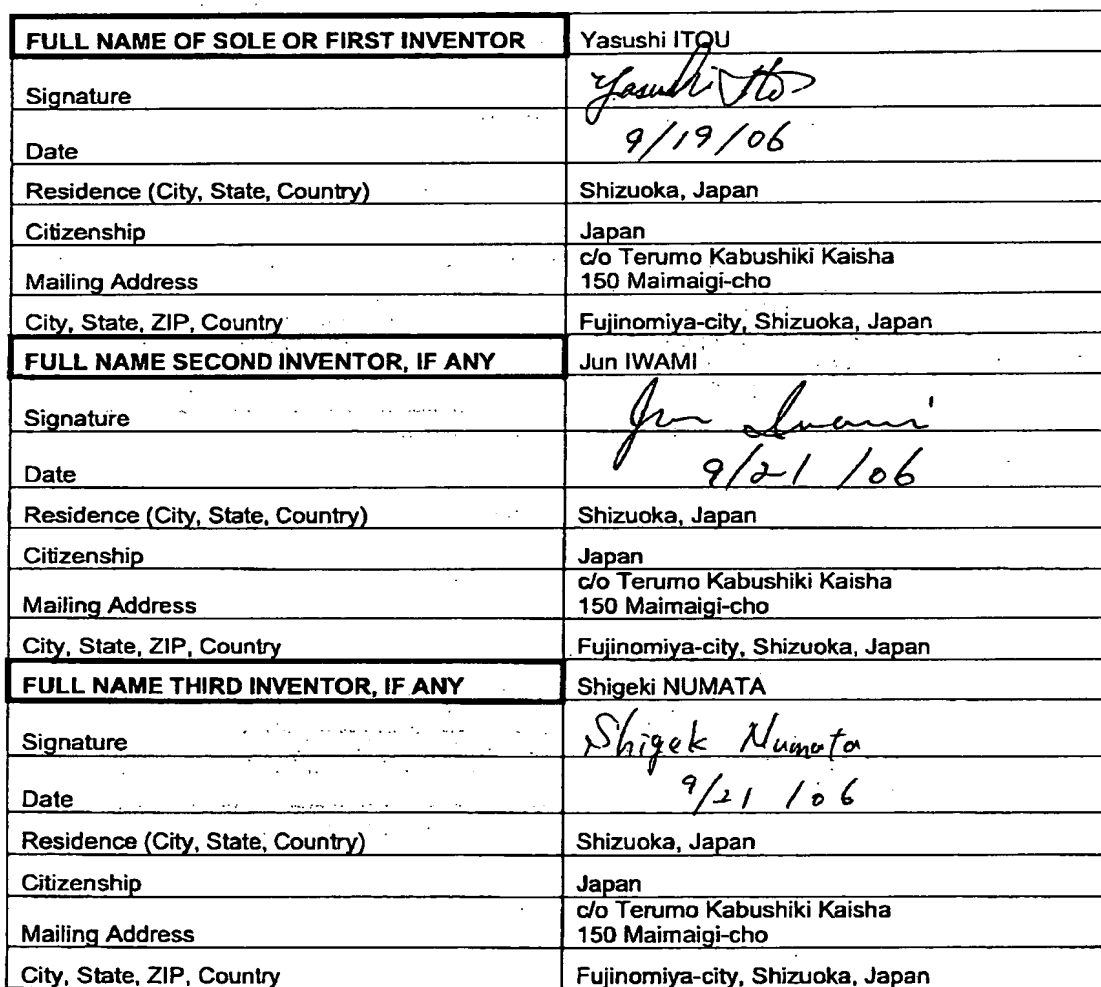 FULL NAME OF SOLE OR FIRST INVENTOR Yasushi ITOU
Signature Yasushi Ito
Date 9/19/06
Residence (City, State, Country) Shizuoka, Japan
Citizenship Japan
Mailing Address c/o Terumo Kabushiki Kaisha
150 Maimaigi-cho
City, State, ZIP, Country Fujinomiya-city, Shizuoka, Japan
FULL NAME SECOND INVENTOR, IF ANY Jun IWAMI
Signature Jun Iwami
Date 9/21/06
Residence (City, State, Country) Shizuoka, Japan
Citizenship Japan
Mailing Address c/o Terumo Kabushiki Kaisha
150 Maimaigi-cho
City, State, ZIP, Country Fujinomiya-city, Shizuoka, Japan
FULL NAME THIRD INVENTOR, IF ANY Shigeki NUMATA
Signature Shigek Numata
Date 9/21/06
Residence (City, State, Country) Shizuoka, Japan
Citizenship Japan
Mailing Address c/o Terumo Kabushiki Kaisha
150 Maimaigi-cho
City, State, ZIP, Country Fujinomiya-city, Shizuoka, Japan